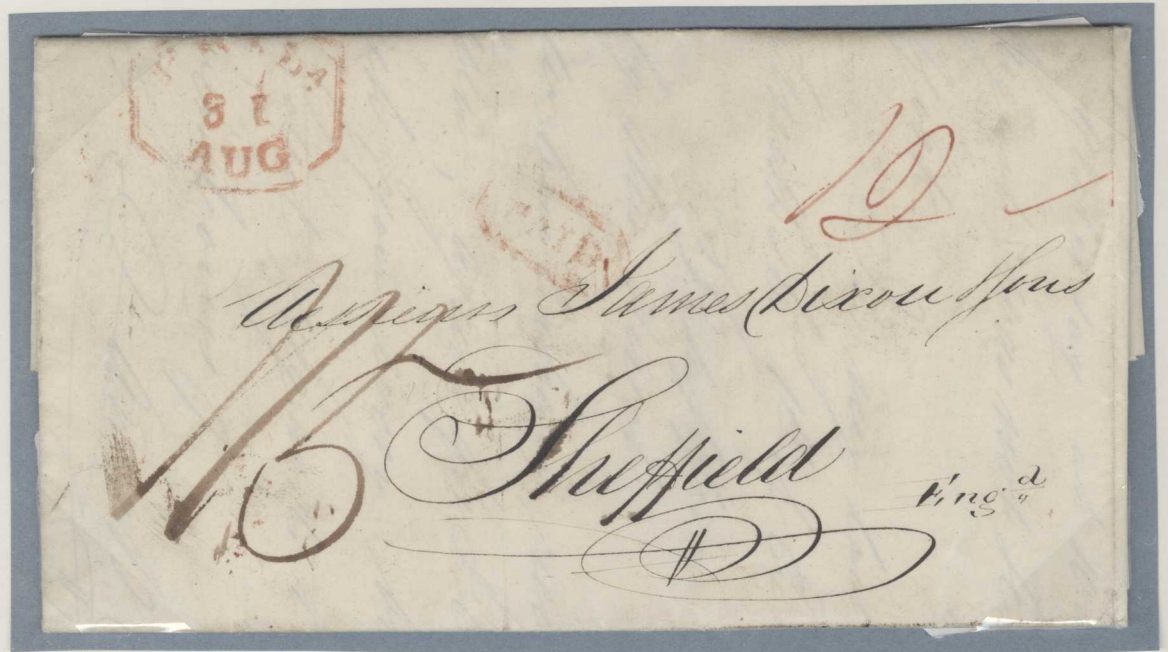 PHILA
31
AUG
PAID
12
Messieurs James Dixon & Sons
Sheffield
Eng.d